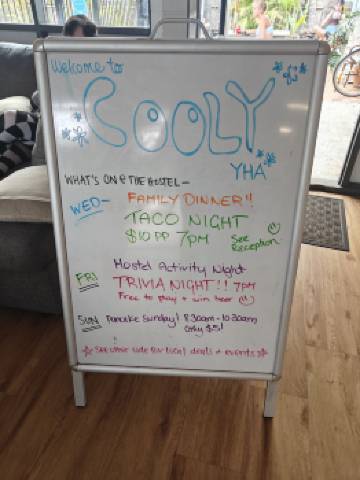 Welcome to
COOLY
YHA
WHAT'S ON @ THE HOSTEL-
WED- FAMILY DINNER!!
TACO NIGHT
$10 PP 7PM See Reception
FRI Hostel Activity Night
TRIVIA NIGHT!! 7PM
Free to play + win beer
SUN Pancake Sunday! 8:30am - 10:30am
Only $5!
See other side for local deals + events